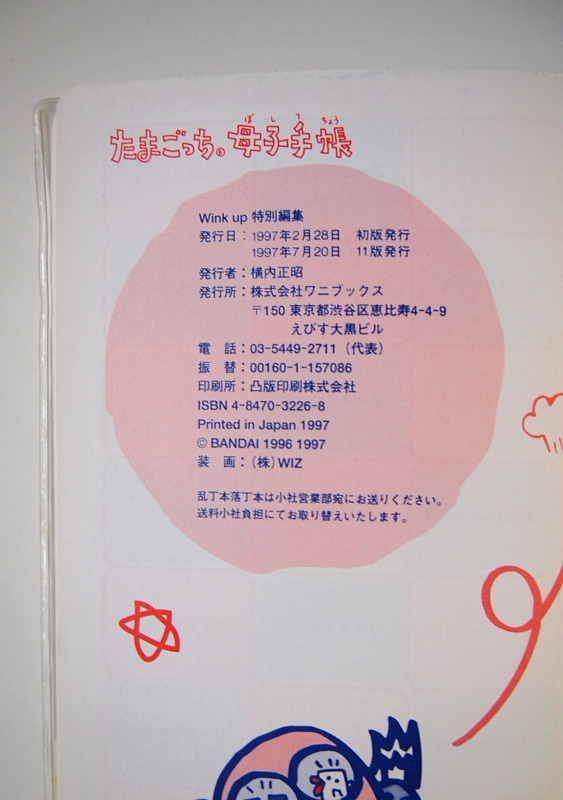 ぼ し て ちょう
たまごっち。母子手帳
Wink up 特別編集
発行日：1997年2月28日　初版発行
1997年7月20日　11版発行
発行者：横内正昭
発行所：株式会社ワニブックス
〒150 東京都渋谷区恵比寿4-4-9
えびす大黒ビル
電　話：03-5449-2711（代表）
振　替：00160-1-157086
印刷所：凸版印刷株式会社
ISBN 4-8470-3226-8
Printed in Japan 1997
© BANDAI 1996 1997
装　画：（株）WIZ
乱丁本落丁本は小社営業部宛にお送りください。
送料小社負担にてお取り替えいたします。